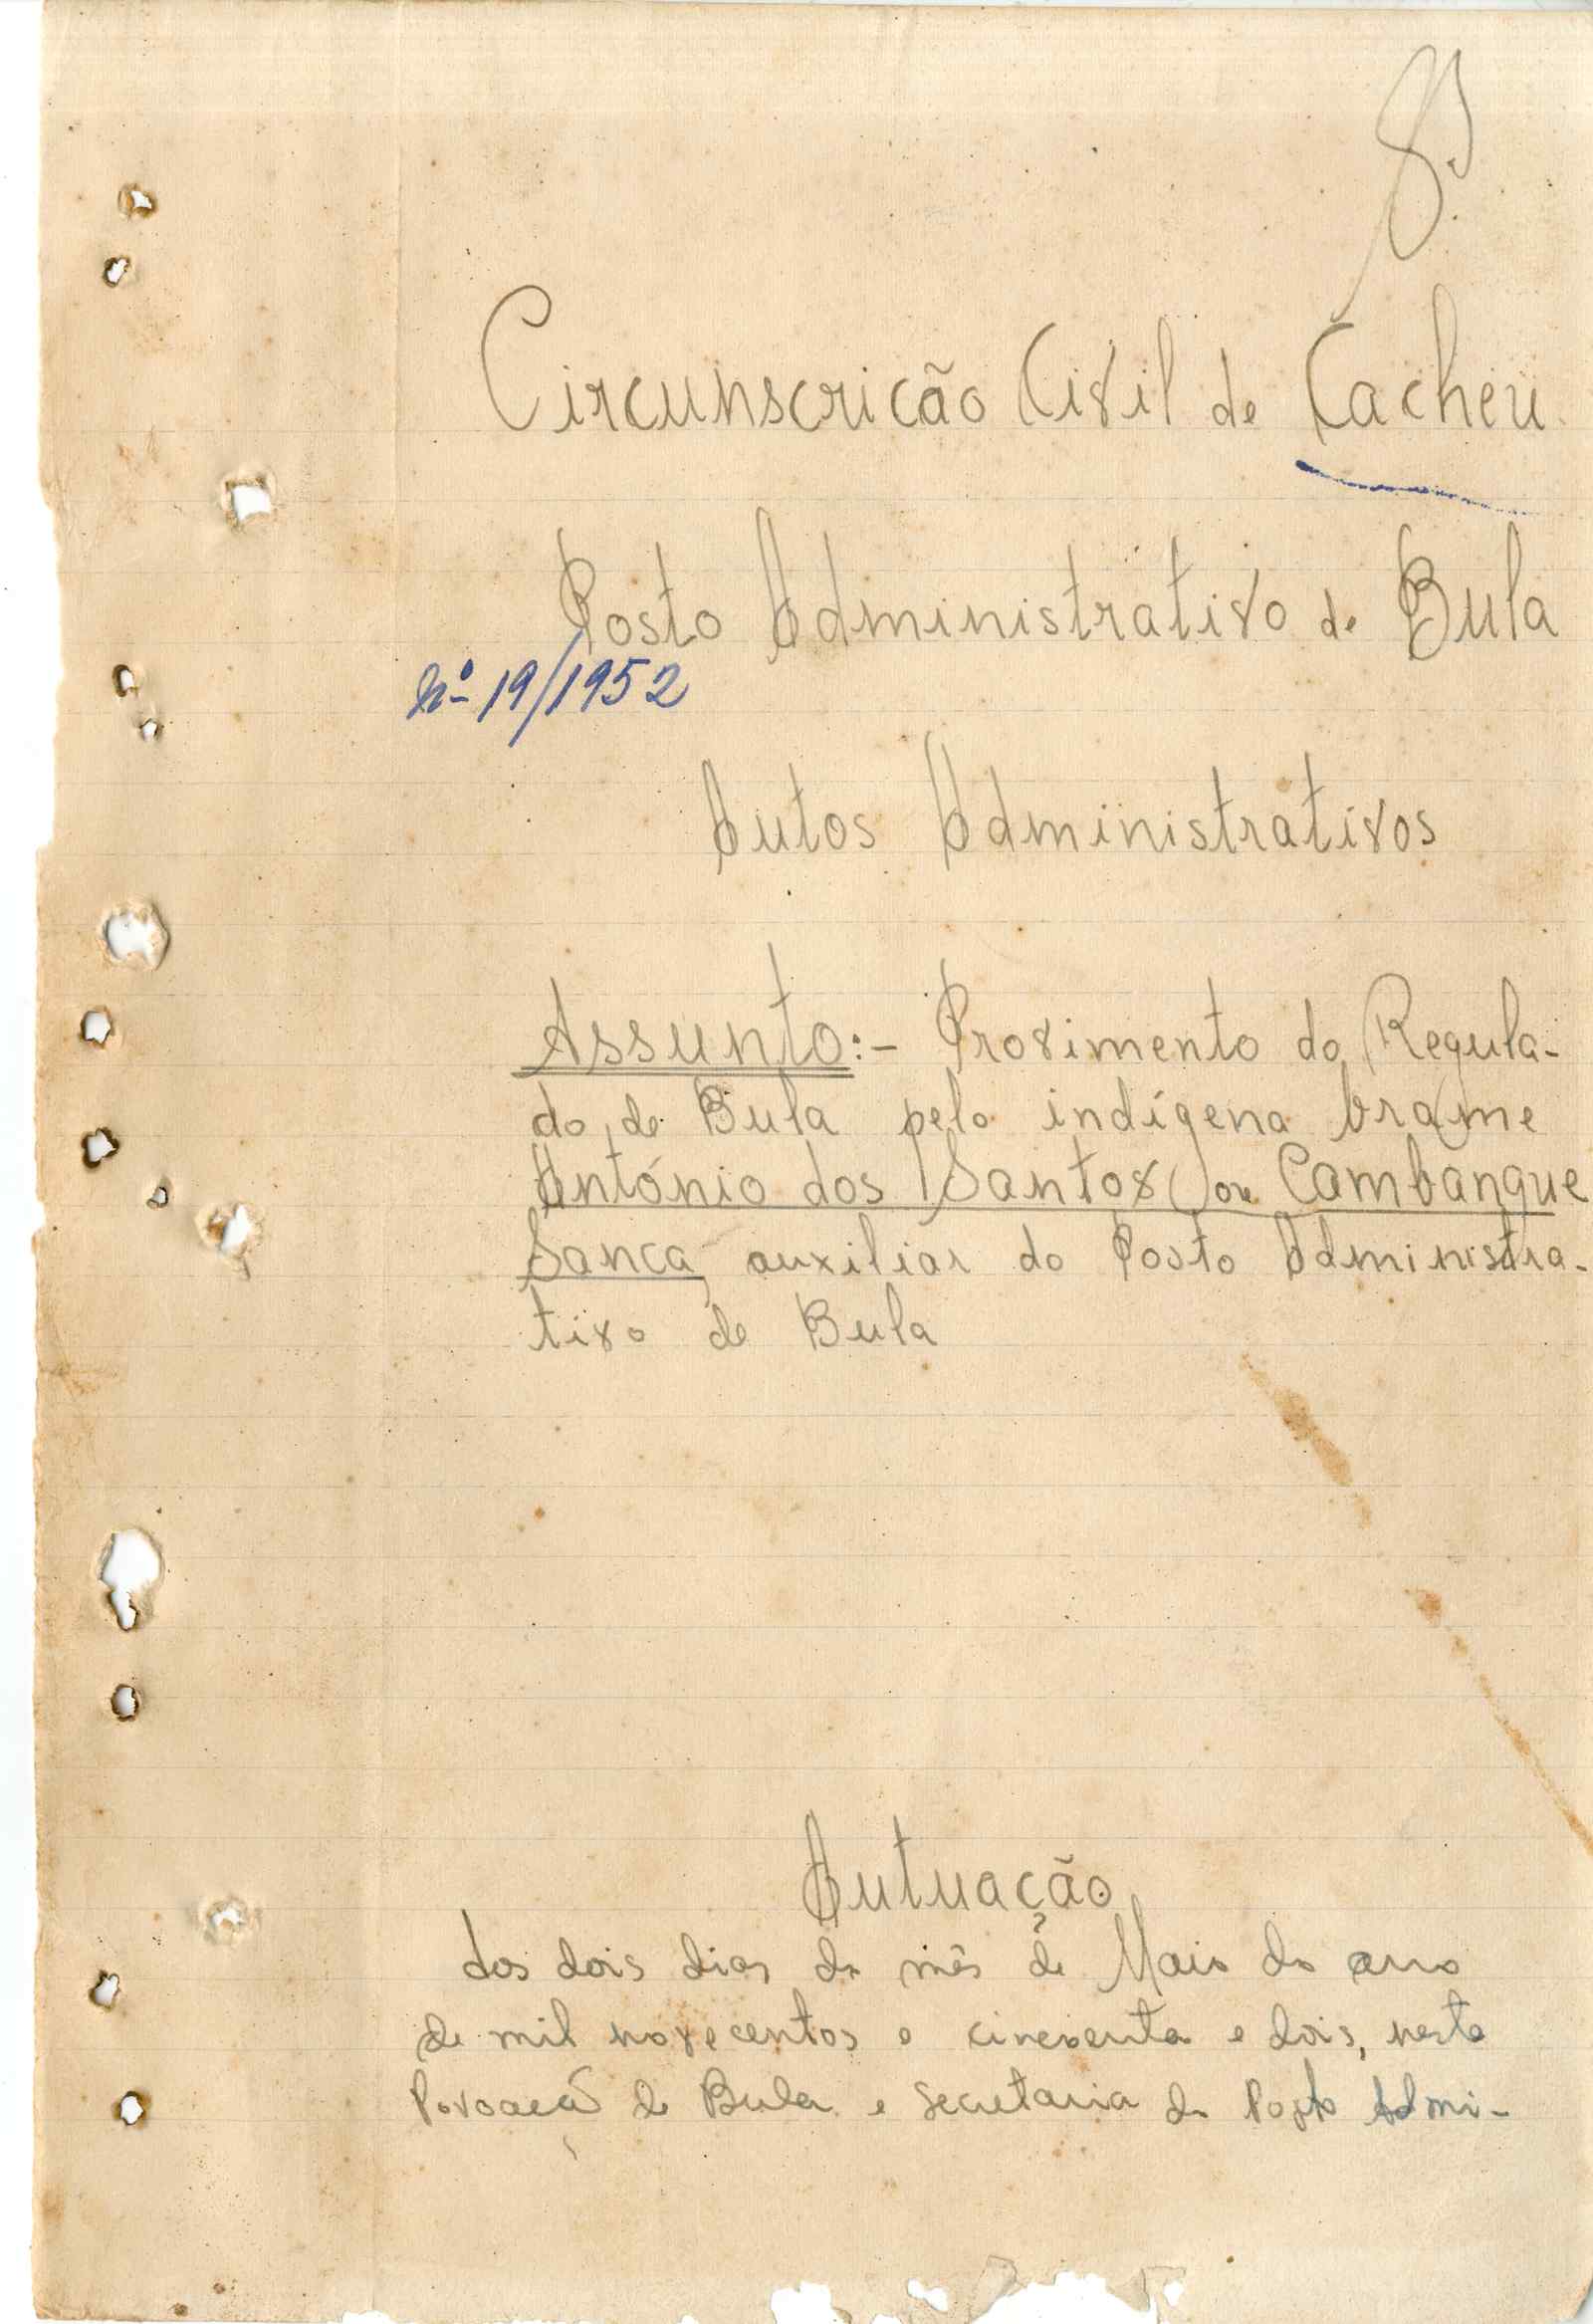 Circunscricão Civil de Cacheu
Posto Administrativo de Bula
Nº 19/1952
Autos Administrativos
Assunto:- Provimento do Regula-
do de Bula pelo indígena brame
António dos Santos ou Cambanque
Sanca, auxiliar do Posto Administra-
tivo de Bula
Autuação
Aos dois dias do mês de Maio do ano
de mil novecentos e cincoenta e dois, nesta
Povoação de Bula e Secretaria do Posto Admi-